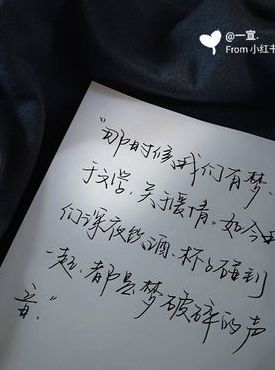 @一宣.
From 小红书
“那时候我们有梦,
于文学,关于爱情。如今
们深夜饮酒,杯子碰到
一起,都是梦破碎的声
音.”